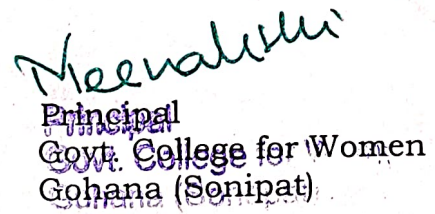 Meenakshi
Principal
Govt. College for Women
Gohana (Sonipat)